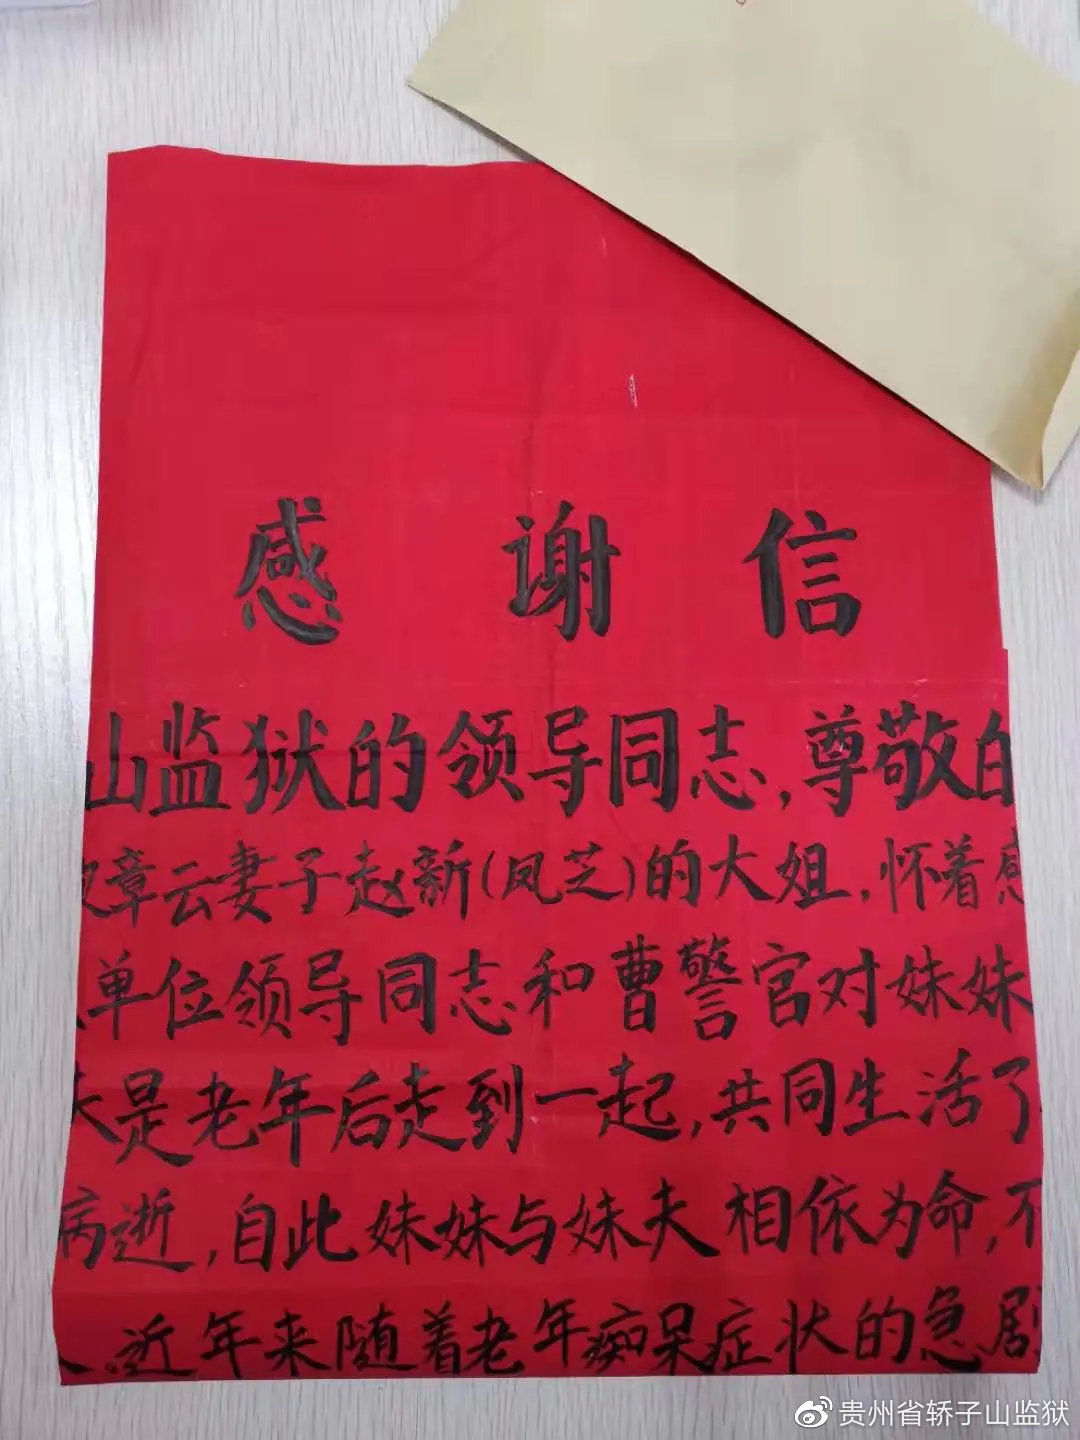 感谢信
山监狱的领导同志,尊敬的
章云妻子赵新(凤芝)的大姐,怀着感
单位领导同志和曹警官对妹妹
是老年后走到一起,共同生活了
病逝,自此妹妹与妹夫相依为命,不
近年来随着老年痴呆症状的急剧
贵州省轿子山监狱